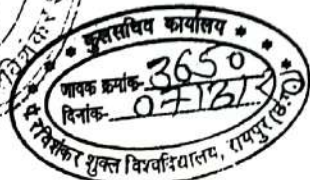 * * कुलसचिव कार्यालय * *
जावक क्रमांक- 3650
दिनांक-
पं. रविशंकर शुक्ल विश्वविद्यालय, रायपुर (छ.ग.)